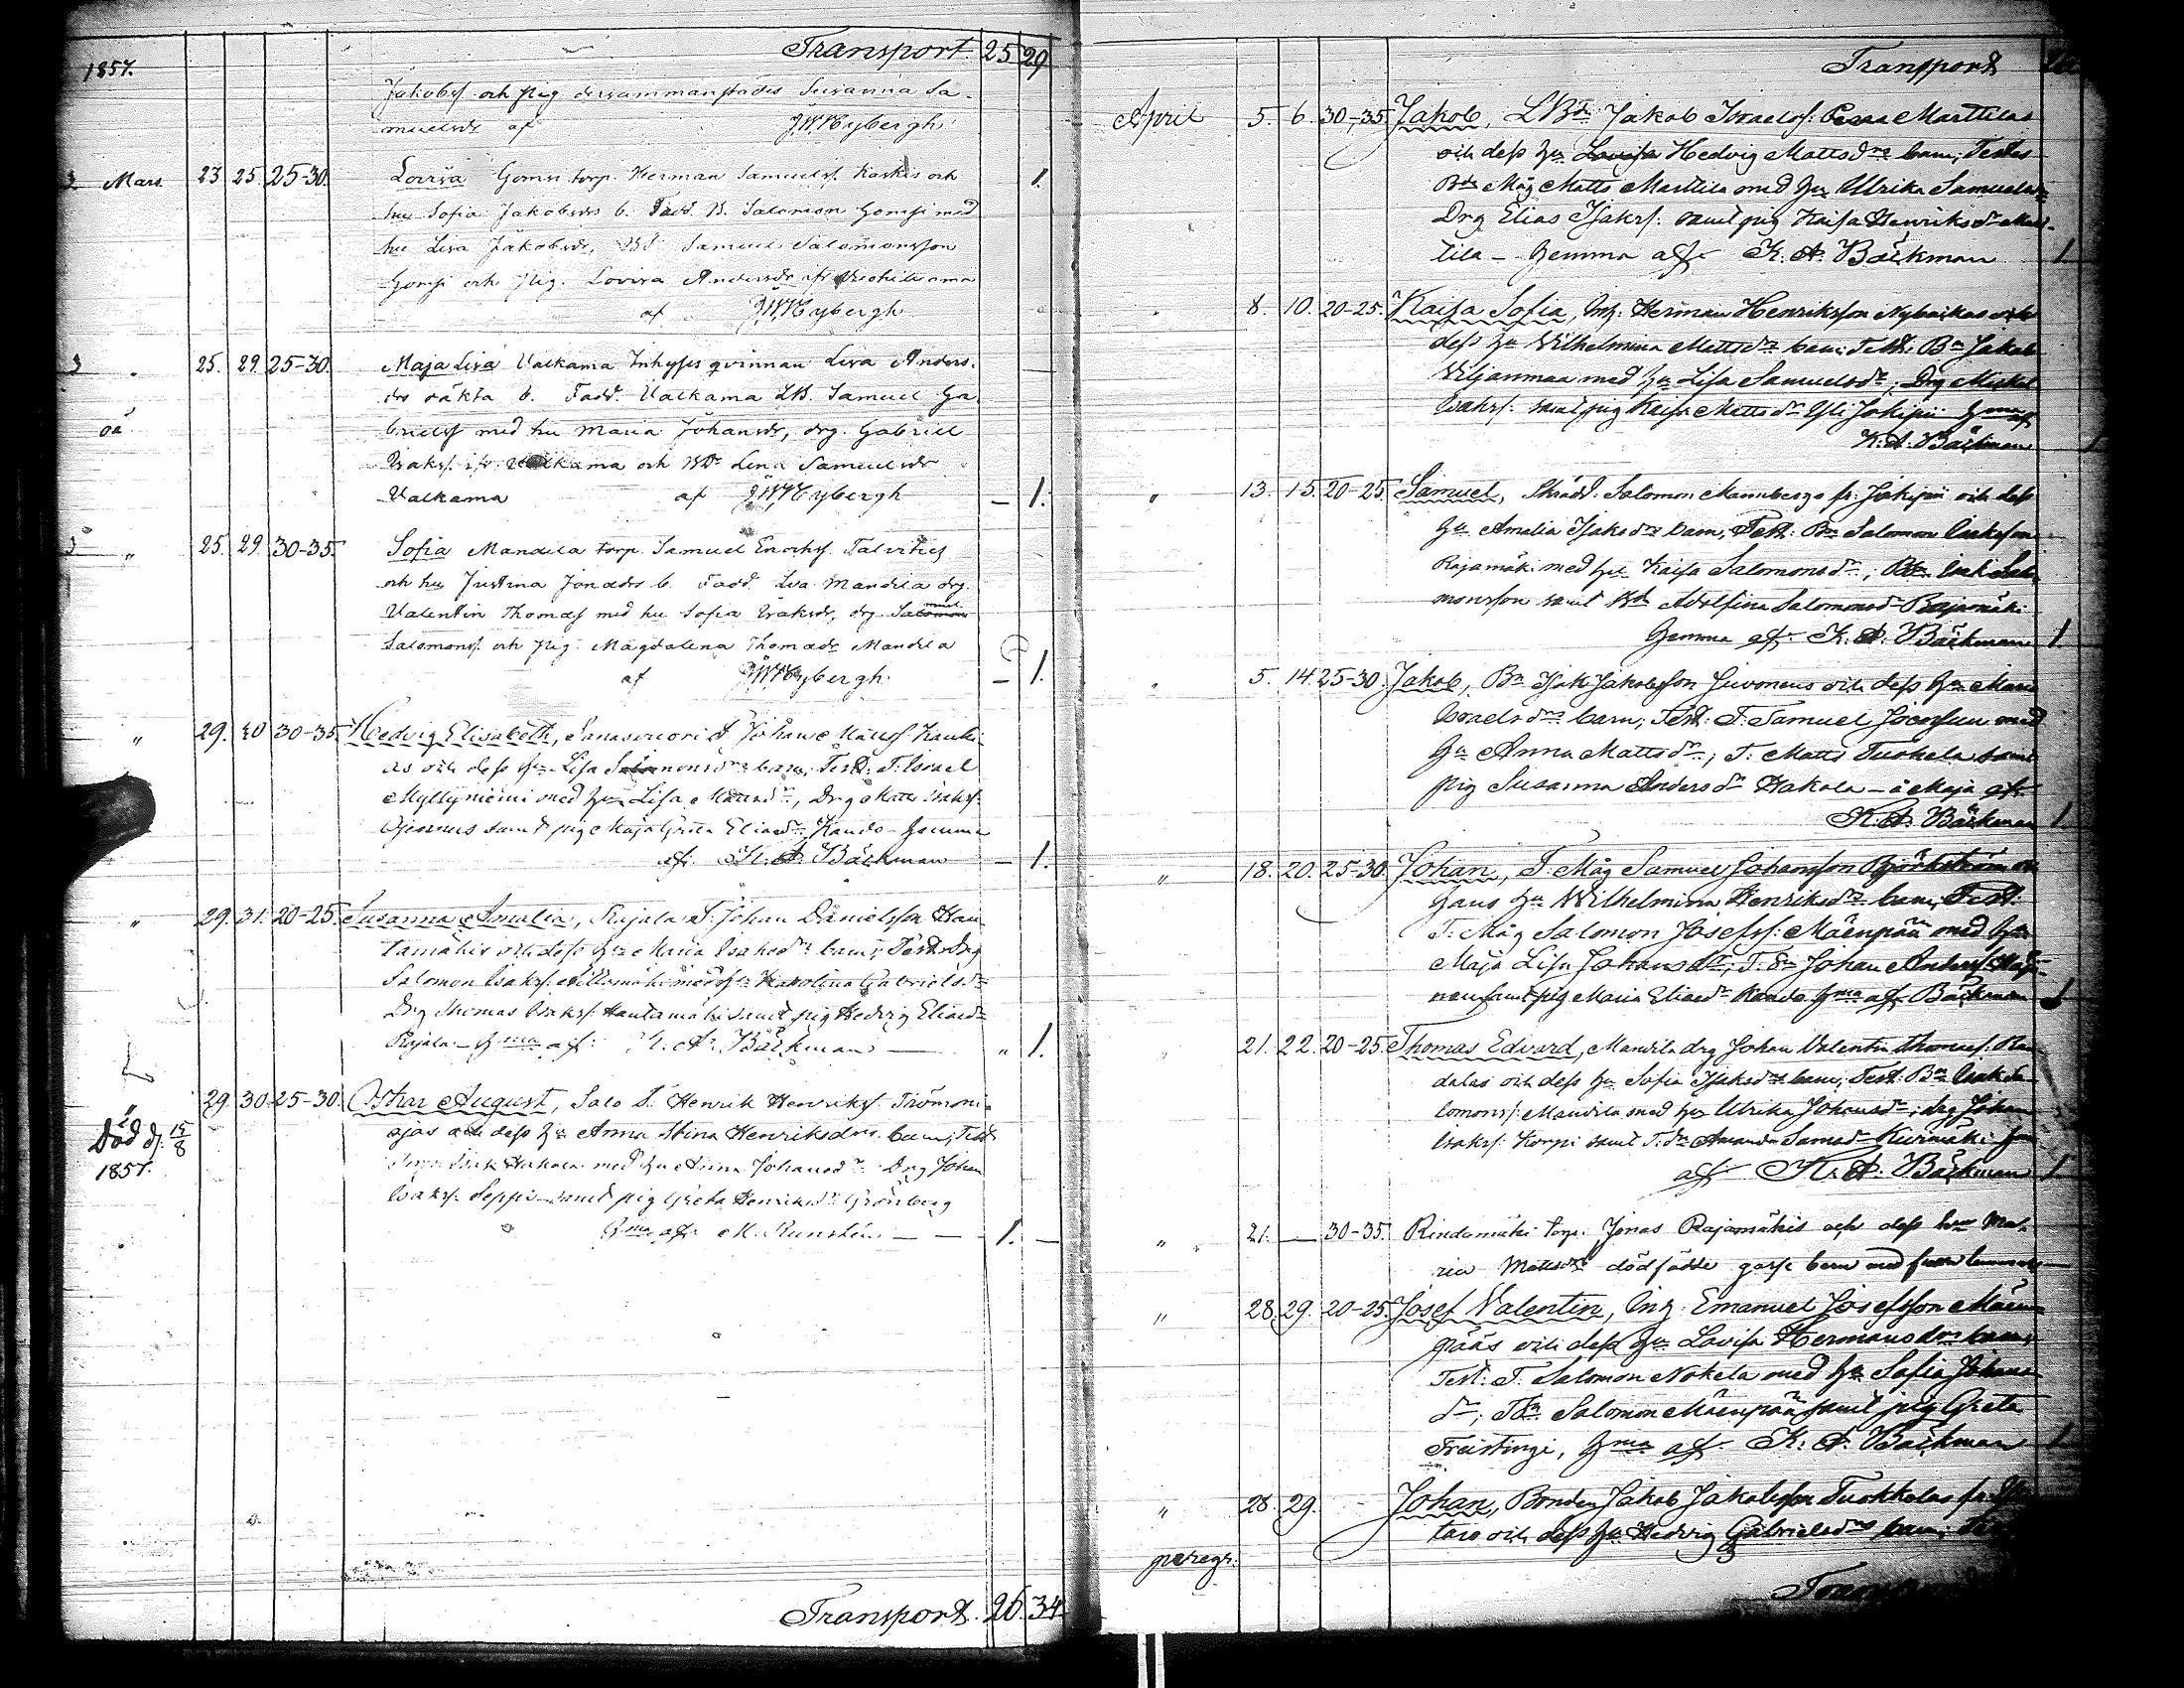 Transport. 25 29
1857.
Jakobsf och pig dersammanstädes Susanna Sa-
muelsdr af J W Nybergh
3 Mars 23. 25. 25-30. Lovisa Gomsi torp. Herman Samuelsf. Koskis och 1.
hu Sofia Jakobsdrs b. Fadd. B. Salomon Gomsi med
hu Lisa Jakobsdr, Samuel Salomonsson
Gomsi och pig. Lovisa Andersdr
af J W Nybergh
3 " 25. 29. 25-30. Maja Lisa Valkama Inhyses qvinnan Lisa Anders-
drs oäkta b. Fadd. Valkama LB. Samuel Ga
oä brielsf med hu Maria Johansdr, drg. Gabriel
Isaksf. Valkama och BDr Lena Samuelsdr
Valkama af J W Nybergh — 1.
3 " 25. 29 30-35. Sofia Mandila torp. Samuel Enochsf. Talvities
och hu Justina Jonasdrs b. Fadd. Mandila drg.
Valentin Thomasf med hu Sofia Isaksdr, drg. Samuel
Salomonsf. och pig. Magdalena Thomasdr Mandila
af J W Nybergh — 1.
" 29. 30 30-35 Hedvig Elisabeth, Sanasvuori T Johan Mattsf Kauki-
as och dess hu Lisa Salomonsdrs barn; Test: T: Israel
Myllyniemi med hu Lisa Mattsdr, Drg Matts Isaksf:
samt pig Maja Greta Eliasdr Kando - hemma
af K. A. Bäckman — 1.
" 29. 31. 20-25. Susanna Amalia, Rajala T: Johan Danielsson Hau
tamäkis och dess hu Maria Isaksdrs barn; Test: Drg
Salomon Isaksf: med hu Karolina Gabrielsdr
Drg Thomas Isaksf: Hautamäki samt pig Hedvig Eliasdr
Rajala - hma af: K. A. Bäckman — " 1.
" 29. 30. 25-30. Oskar August, Salo T. Henrik Henriksf.
Död d. 15/8 ojas och dess hu Anna Stina Henriksdrs barn; Test:
1857. Isak Hakola med hu Anna Johansdr Drg Johan
Isaksf: Seppi samt pig Greta Henriksdr Grönberg
hma af M. Runstén — — 1. —
Transport. 26. 34.
Transport
April 5. 6. 30-35. Jakob, LBds Jakob Israelsf: Marttilas
och dess hu Hedvig Mattsdrs barn; Testes
Bds Måg Matts Marttila med hu Ulrika Samuelsdr
Drg Elias Isaksf: samt pig Kaisa Henriksdr Mart-
tila - hemma af K. A. Bäckman 1
" 8. 10. 20-25. Kaisa Sofia, Inh: Herman Henriksson och
dess hu Wilhelmina Mattsdrs barn: Test: Bn Jakob
Viljanmaa med hu Lisa Samuelsdr, Drg Mickel
Isaksf: samt pig Kaisa Mattsdr Yli Jokipii hma af
K. A. Bäckman 1
" 13. 15. 20-25. Samuel, Skrädd: Salomon Mannbergs fr: Jokipii och dess
hu Amalia Isaksdrs barn; Test: Bn Salomon Isaksson
Rajamäki med hu Kaisa Salomonsdr; Bn Isak Salo-
monsson samt Bd Adolfina Salomonsdr Rajamäki
hemma af K. A. Bäckman 1.
" 5. 14. 25-30. Jakob, Bn Isak Jakobsson Juvonens och dess hu Maria
Israelsdrs barn; Test: T: Samuel med
hu Anna Mattsdr; T: Matts Tuokola samt
pig Susanna Andersdr Hakola - af
K. A. Bäckman 1
" 18. 20. 25-30. Johan, T. Måg Samuel Johansson Björkström och
hans hu Wilhelmina Henriksdrs barn, Test:
T: Måg Salomon Josefsf: Mäenpää med hu
Maja Lisa Johansdr; T: Sn Johan Andersf
samt pig Maria Eliasdr Kando hma af Bäckman 1
" 21. 22. 20-25. Thomas Edvard, Mandila drg Johan Valentin Thomasf. Man
dalas och dess hu Sofia Isaksdrs barn; Test: Bn Isak Sa-
lomonsf: Mandila med hu Ulrika Johansdr; drg Johan
Isaksf: Korpi samt T:dr Amanda Samsdr Kuivimäki hma
af K. A. Bäckman 1
" 21. — 30-35. Rindamäki torp. Jonas Rajamäkis och dess hu Ma-
ria Mattsdrs dödfödde gosse barn med
" 28. 29. 20-25. Josef Valentin, Inh: Emanuel Josefsson Mäen-
pääs och dess hu Lovisa Hermansdrs barn;
Test: T: Salomon Nokela med hu Sofia Johans-
dr; Salomon Mäenpää samt pig Greta
Froistingi, hma af K. A. Bäckman 1
" 28. 29. Johan, Bonden Jakob Jakobsson Tuokkolas fr:
taro och dess hu Hedvig Gabrielsdrs barn;
peregr.